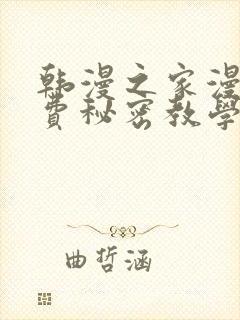 韩漫之家漫
费秘密教学
曲哲涵